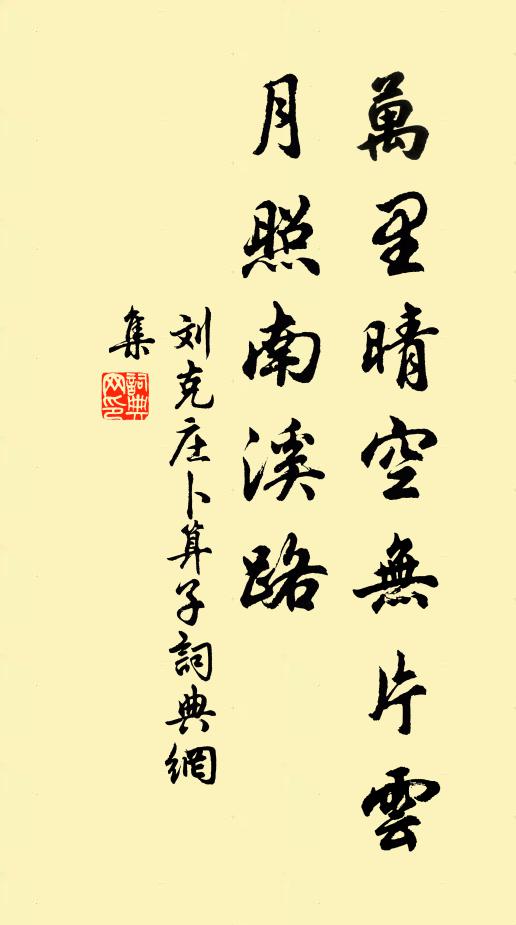 萬里晴空無片雲
月照南溪路
刘克庄卜算子詞典網
集
詞典
网印